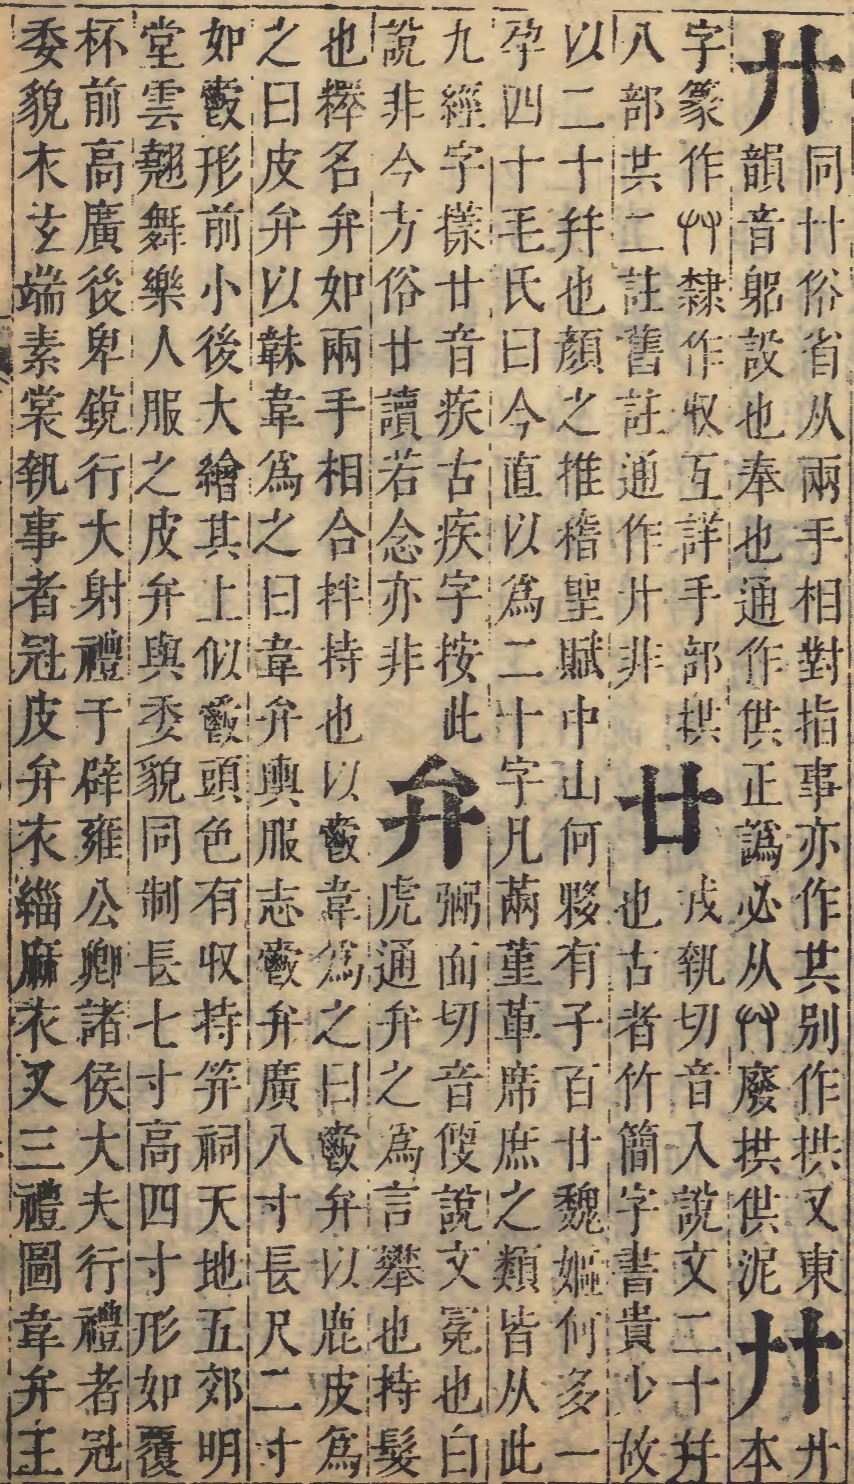 廾
同廾俗省从兩手相對指事亦作共别作拱又東
韻音躬設也奉也通作供正譌必从𠬞廢拱供泥
廾
廾
本
字篆作𠬞隸作収互詳手部拱
八部共二註舊註通作廾非
廿
戎執切音入說文二十幷
也古者竹簡字書貴少故
以二十幷也顏之推稽聖賦中山何夥有子百廿魏嫗何多一
孕四十毛氏曰今直以為二十字凡繭堇革席庶之類皆从此
九經字㨾廿音疾古疾字按此
說非今方俗廿讀若念亦非
弁
弼面切音㣪說文冕也白
虎通弁之為言攀也持髮
也釋名弁如兩手相合拌持也以爵韋為之曰爵弁以鹿皮為
之曰皮弁以韎韋為之曰韋弁輿服志爵弁廣八寸長尺二寸
如爵形前小後大繒其上似爵頭色有収持笄祠天地五郊明
堂雲翹舞樂人服之皮弁與委貌同制長七寸高四寸形如覆
杯前高廣後卑銳行大射禮于辟雍公卿諸侯大夫行禮者冠
委貌衣玄端素裳執事者冠皮弁衣緇麻衣又三禮圖韋弁王